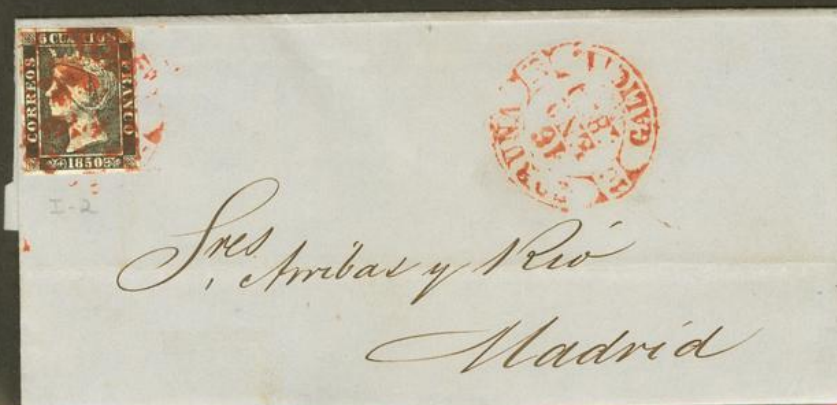 6 CUARTOS
CORREOS
FRANCO
1850
I-2
GALICIA
Sres Arribas y Rió
Madrid